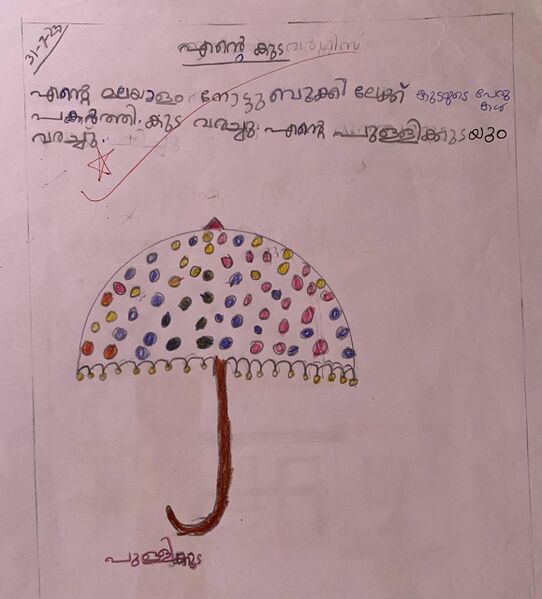 31-7-23
എന്റെ കുട
എന്റെ മലയാളം നോട്ടുബുക്കിലേക്ക് കുടയുടെ പേരു
കൾ
പകർത്തി. കുട വരച്ചു. എന്റെ പുള്ളിക്കുടയും
വരച്ചു.
പുള്ളിക്കുട